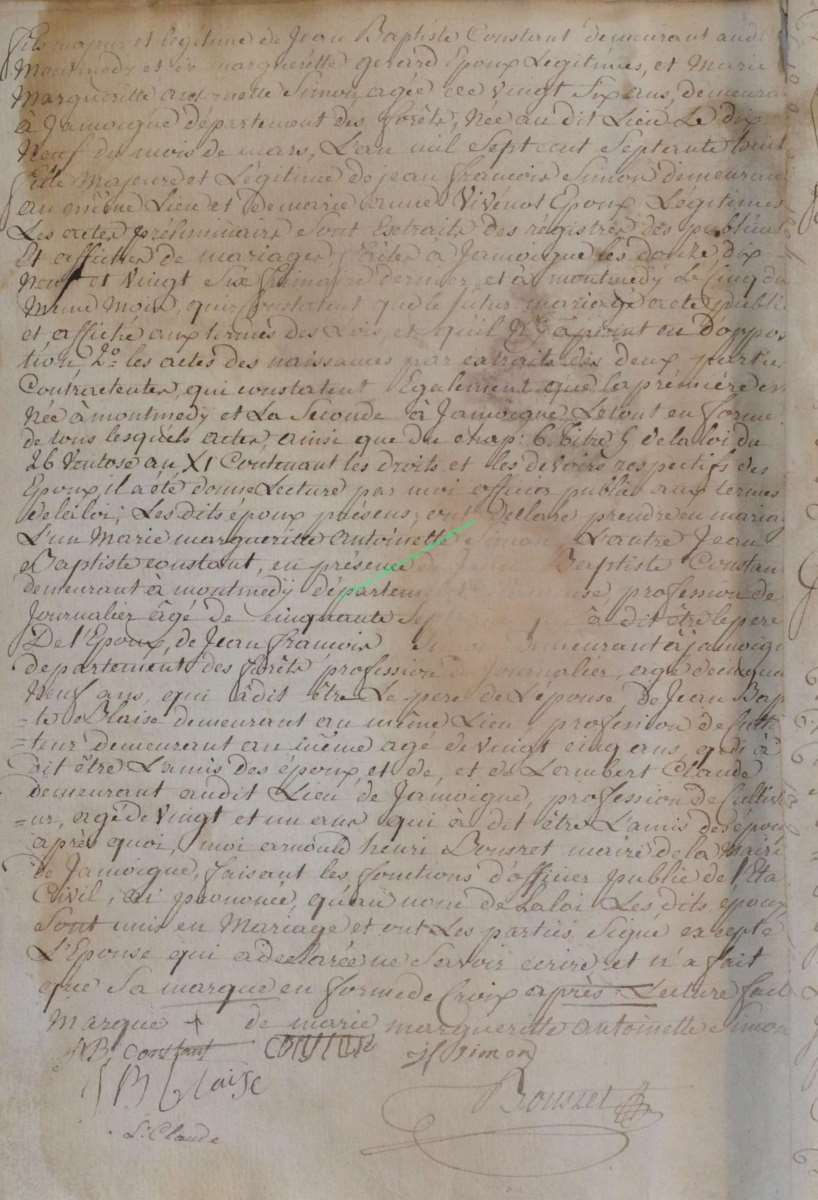 fils majeur et légitime de Jean Baptiste Constant demeurant audi
Montmédy et de marguerette gerard Epoux Legitimes, et Marie
Margueritte antoinette Simon agée de vingt Six ans, demeura
à Jamoigue département des forêts, Née au dit Lieu Le dix
Neuf du mois de mars, L'an mil Sept cent Septante huit
fille Majeure et Légitime de jean francois Simon demeuran
au même Lieu et de marie anne Vivenot Epoux Légitimes
Les actes préliminaires sont extraits des régistres des public
Et affiches de mariages faites à Jamoigue les douze dix
Neuf et vingt Six frimaire dernier, et à montmedy Le Cinq du
Même Mois, qui constatent que le futur mariage a été publi
et affiché aux termes des Lois, et qu'il n'y a point eu D'oppos
tion 2o les actes des naissances par extraits des deux partie
Contractentes, qui constatent Egalement que la prémière es
Née à montmedy et La Seconde à Jamoigue Le tout en forme
de tous lesquels actes ainsi que du chap: 6. titre 5 de la loi du
26 Ventose an XI Contenant les droits et les devoirs respectifs des
Epoux, il a été donné Lecture par moi officier public aux termes
de la loi; Les dits époux présens, ont déclaré prendre en mariag
L'un Marie margueritte antoinette Simon L'autre Jean
Baptiste constant, en présence de Baptiste Constan
demeurant à montmedy départem profession de
Journalier âgé de cinquante sept à dit être le pere
De l'Epoux, de Jean francois demeurant à jamoigu
departement des forêts profession de journalier, agé de
Neuf ans, qui à dit être Le pere de L'épouse De Jean Bap
=te Blaise demeurant au même Lieu profession de Culti
=teur demeurant au même agé de vingt cinq ans, qui à
dit être L'amis des époux et de, et de Lambert Claude
demeurant audit Lieu de Jamoigue, profession de Cultiva
=ur, agé de vingt et un ans qui à dit être L'amis des épou
après quoi, moi arnond henri Brousret maire de la Mairi
de Jamoigue, faisant les fonctions d'officier public de l'Eta
Civil, ai prononcé, qu'au nom de la loi Les dits époux
Sont unis en Mariage et ont Les parties Signé excepté
L'Epouse qui a declarée ne Savoir ecrire et n'a fait
que Sa marque en forme de Croix après Lecture fait
Marque + de marie margueritte antoinette Simon
JB constant CONSTANT jf Simon
JB blaise
Brousret
L: Claude